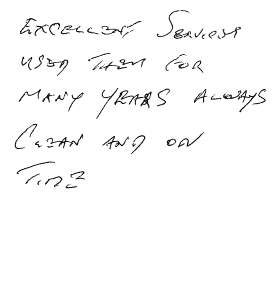 EXCELLENT SERVICES
USED THEM FOR
MANY YEARS ALWAYS
CLEAN AND ON
TIME